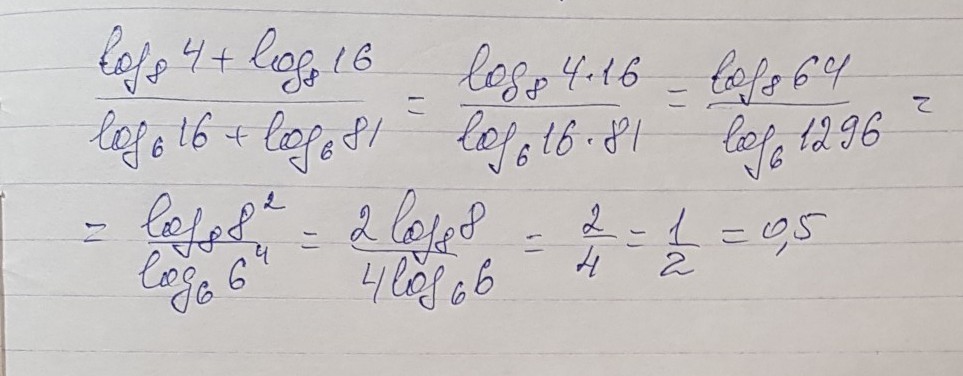 (log₈ 4 + log₈ 16) / (log₆ 16 + log₆ 81) = (log₈ 4·16) / (log₆ 16·81) = (log₈ 64) / (log₆ 1296) =
= (log₈ 8²) / (log₆ 6⁴) = (2 log₈ 8) / (4 log₆ 6) = 2/4 = 1/2 = 0,5